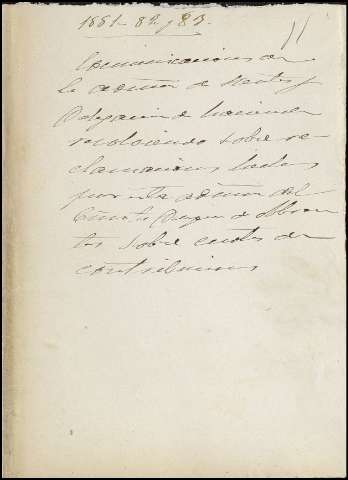 1881-82 y 83.
Comunicaciones de
la admon de Rentas y
Delegacion de hacienda
resolviendo sobre re-
clamaciones hechas
por esta admon del
Duque de Abran
tes sobre cuotas de
contribuciones